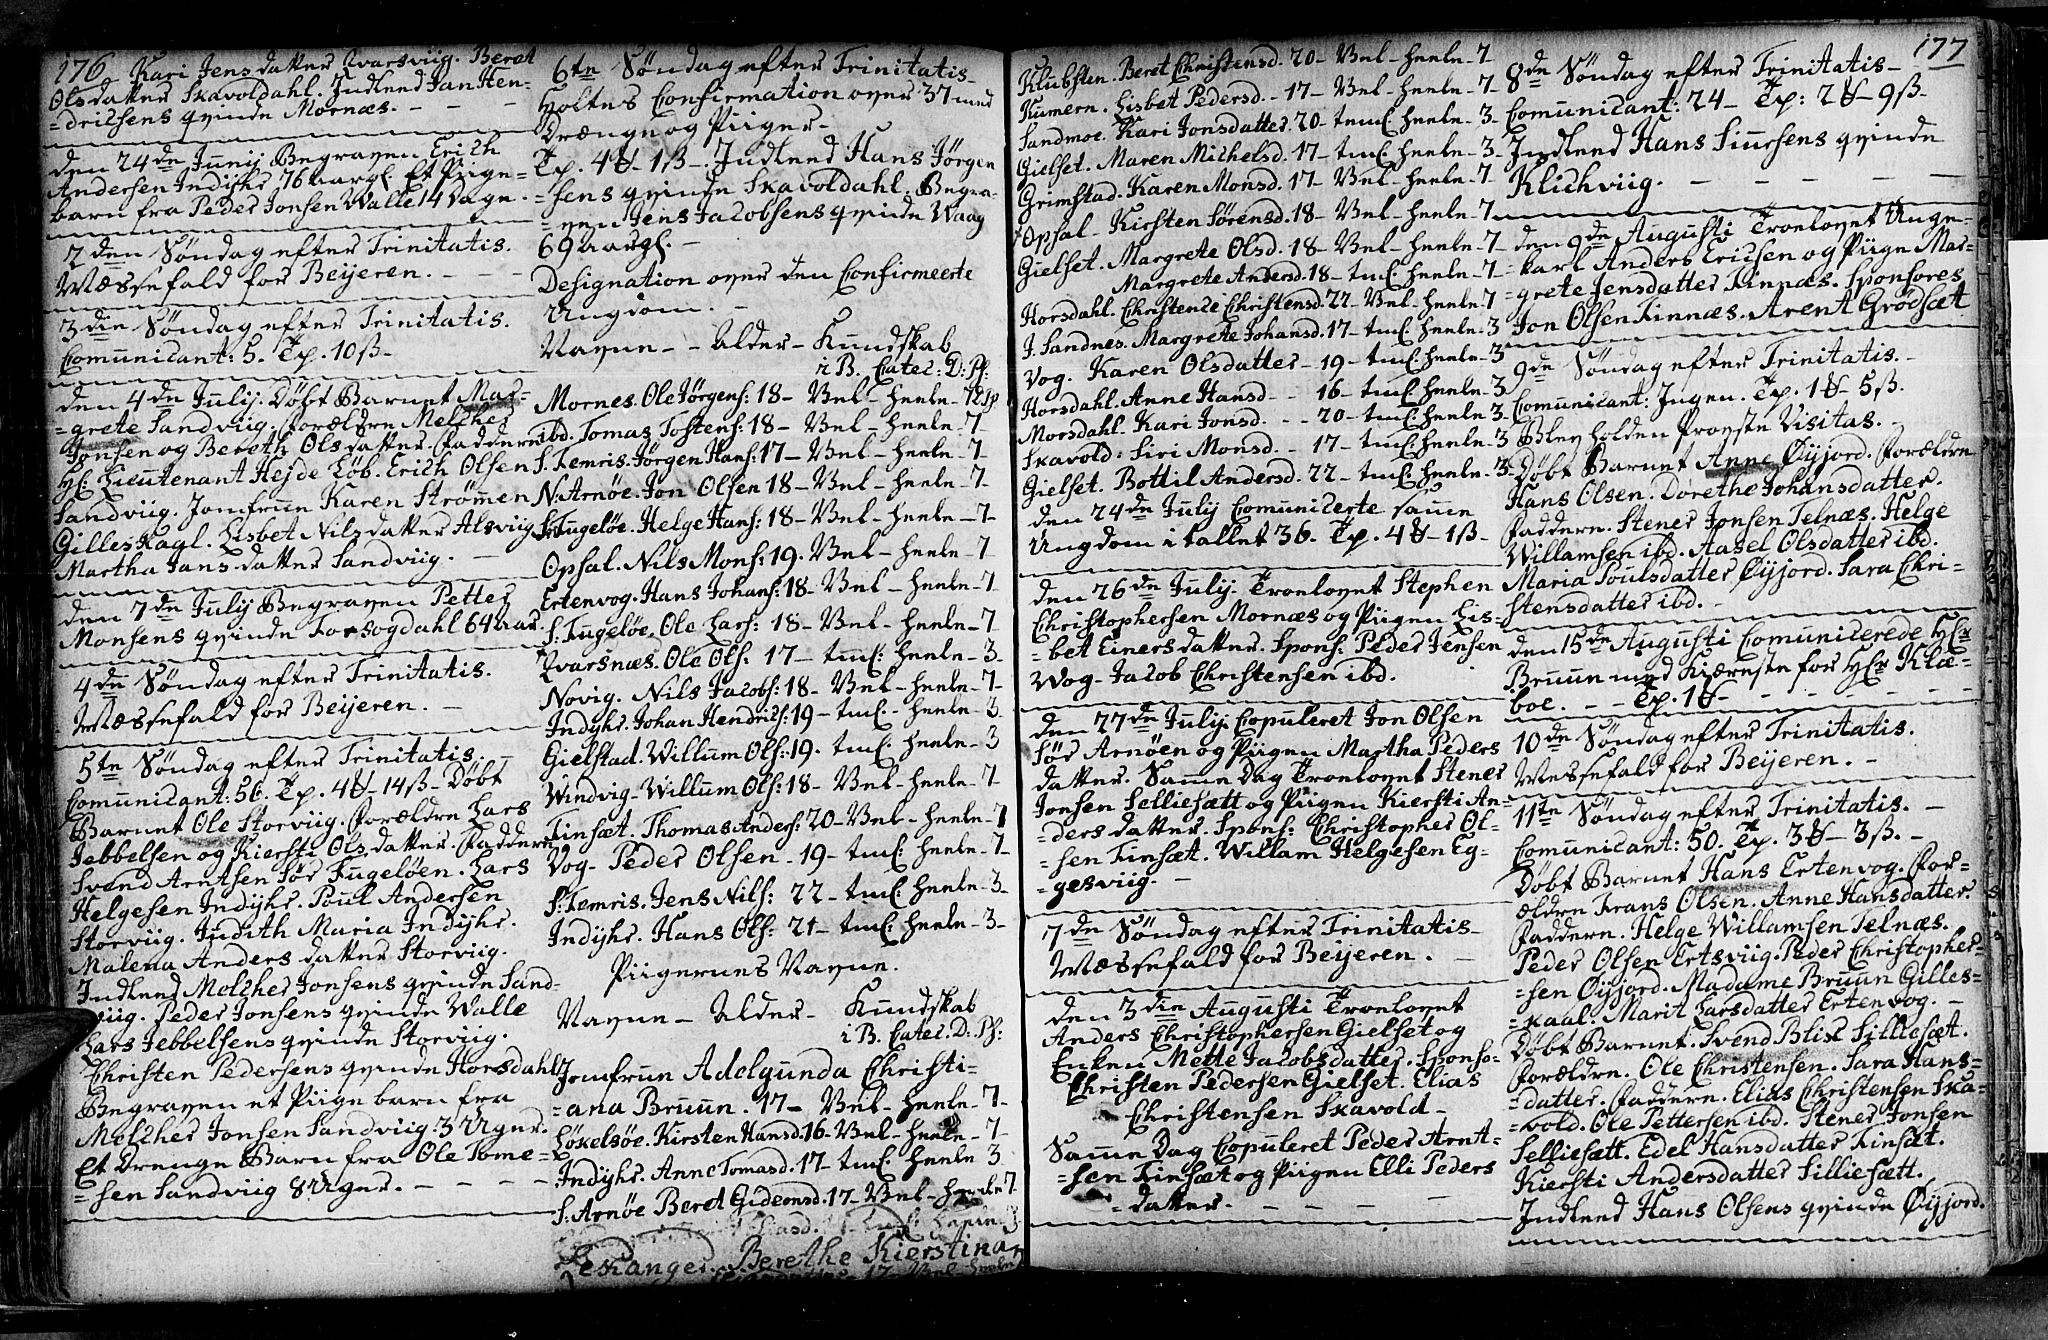 176
Kari Jensdatter Qvarsviig. Beret
Olsdatter Skavoldahl. Indleed Jan Hen-
=drichsens qvinde Mornæs. - - -
den 24de Junij Begraven Erich
Andersen Indyhr 76 aargl. Et Piige-
barn fra Peder Jonsen Walle 14 Dage.
2den Søndag efter Trinitatis.
Mæssefald for Beijeren. - - -
3die Søndag efter Trinitatis.
Communicant: 5. Tp. 10ß-
den 4de Julij. Døbt Barnet Mar-
=grete Sandviig. Forældre Melcher
Jonsen og Bereth Olsdatter. Faddere
Hr: Lieutenant Hejde Erich Olsen
Sandviig. Jomfrue Karen Strømen
Gilleskagl. Lisbet Nilsdatter Alsviig
Martha Jansdatter Sandviig. -
den 7de Julij Begraven Petter
Monsens qvinde Torsogdahl 64 aar.
4de Søndag efter Trinitatis.
Mæssefald for Beijeren. -
5te Søndag efter Trinitatis.
Communicant: 56. Tp. 4 14ß- Døbt
Barnet Ole Storviig. Forældre Lars
Jebbelsen og Kiersti Olsdatter. Faddere
Svend Arntsen Sør Fugeløen. Lars
Helgesen Indyhr. Poul Andersen
Storviig. Judith Maria Indyhr.
Malena Andersdatter Storviig.
Indleed Melcher Jonsens qvinde Sand-
viig. Peder Jonsens qvinde Walle
Lars Jebbelsens qvinde Storviig.
Christen Pedersens qvinde Horsdahl
Begraven et Piige barn fra
Melcher Jonsen Sandviig 3 Uger.
Et Drenge Barn fra Ole Tome-
=sen Sandviig 8 Uger. - - - -
6te Søndag efter Trinitatis-
Holtes Confirmation over 37 med
Drænge og Piiger-
Tp. 4 1ß-. Indleed Hans Jørgen
=sens qvinde Skavoldahl. Begra-
=ven Jens Jacobsens qvinde Waag
69 aargl. -
Designation over den Confirmeerte
Ungdom. -
Navne - - Alder - Kundskab
i B. Catec: D: Pf:
Mornes. Ole Jørgens: 18 - Vel - heele - 7
ibd. Tomas Tostens: 18 - Vel - heele - 7-
S. Temris. Jørgen Hans: 17 - Vel - heele - 7
N: Arnøe. Jon Olsen 18 - Vel - heele - 7-
S. Fugeløe. Helge Hans: 18 - Vel - heele - 7-
Opsal. Nils Mons: 19. Vel - heele - 7
Ertenvog. Hans Johans: 18 - Vel - heele - 7
S: Fugeløe. Ole Lars: 18 - Vel - heele - 7
Qvarsnæs. Ole Ols: 17 - tml: heele - 3-
Novig. Nils Jacobs: 18 - Vel - heele - 7-
Indyhr. Johan Hendrics: 19 - tml: heele - 3-
Gielstad. Willum Ols: 19. tml: heele - 3
Windvig - Willum Ols: 18 - Vel - heele - 7-
Finsæt. Thomas Anders: 20 - Vel - heele - 7
Vog - Peder Olsen - 19 - tml: heele - 7-
S: Temris. Jens Nils: 22 - tml: heele - 3-
Indyhr. Hans Ols: 21 - tml: heele - 3-
Piigernes Navne.
Navne - Alder - Kundskab
i B. Catec. D. Pf:
Jomfrue Adelgunda Christi-
=ana Bruun. 17 - Vel - heele - 7-
Løkelsøe. Kirsten Hansd. 16 - Vel - heele - 7-
Indyhr. Anne Tomasd. 17 - tml: heele 3
S: Arnøe Beret Gideonsd. 17 - Vel - heele 7
Leskanger. Berethe Kierstina
17 - Vel - heele
177
Klubsten. Beret Christensd. 20 - Vel - heele - 7
Kumern. Lisbet Pedersd. - 17 - Vel - heele - 7
Sandmoe. Kari Jonsdatter. 20 - tml: heele - 3
Gielset. Maren Michelsd. 17 - tml: heele - 3-
Grimstad. Karen Monsd. 17 - Vel - heele - 7
Opsal - Kirsten Sørensd. 18 - Vel - heele - 7
Gielset. Margrete Olsd. 18 - Vel - heele - 7-
Margrete Andersd. 18 - tml: heele - 7
Horsdahl. Christence Christensd. 22 - Vel - heele - 7
J. Sandnes. Margrete Johansd. 17 - tml: heele - 3
Vog. Karen Olsdatter - 19 - tml: heele - 3
Horsdahl. Anne Hansd - - 16 - tml: heele - 3
Morsdahl. Kari Jonsd. - - 20 - tml: heele - 3
Skavold: Siri Monsd. - 17 - tml: heele - 3
Gielset. Bottil Andersd. 22 - tml: heele - 3-
den 24de July Communicerte samme
Ungdom i tallet 36. Tp. 4 1ß-
den 26de July. Troelovet Stephen
Christophersen Mornæs og Piigen Lis-
=bet Einersdatter. Spons: Peder Jensen
Wog - Jacob Christensen ibd.
den 27de July. Copuleret Jon Olsen
Sør Arnøen og Piigen Martha Peders
datter. Samme Dag Troelovet Stener
Jonsen Selliesætt og Piigen Kiersti An-
=dersdatter. Spons: Christopher Ol-
=sen Finsæt. Willam Helgesen Eg-
=gesviig. -
7de Søndag efter Trinitatis-
Mæssefald for Beijeren. -
den 3die Augusti Troelovet
Anders Christophersen Gielset og
Enken Mette Jacobsdatter. Sponso-
Christen Pedersen Gielset. Elias
Christensen Skavold-
Samme Dag Copuleret Peder Arnt-
=sen Finsæt og Piigen Elli Peders
=datter. - - - -
8de Søndag efter Trinitatis-
Communicant: 24 - Tp: 2 9ß-
Indleed Hans Siursens qvinde
Klichviig. - - - - -
den 9de Augusti Troelovet Unge-
=karl Anders Ericsen og Piige Mar-
=grete Jensdatter Finnæs. Sponsores
Jon Olsen Finnæs. Arent Grodsæt
9de Søndag efter Trinitatis. -
Communicant: Ingen. Tp. 1 5ß.
Blev holden Provste Visitas. -
Døbt Barnet Anne Øijord. Forældre
Hans Olsen. Dorethe Johansdatter.
Faddere. Stener Jonsen Telnæs. Helge
Willamsen ibd. Aasel Olsdatter ibd.
Maria Poulsdatter Øijord. Sara Chri-
stensdatter ibd. -
den 15de Augusti Communicerede Hr
Bruun med Kiæreste for Hr Klæ-
boe. - - Tp. 1 - - - - -
10de Søndag efter Trinitatis.
Mæssefald for Beijeren. -
11te Søndag efter Trinitatis. -
Communicant: 50. Tp. 3 3ß. -
Døbt Barnet Hans Ertenvog. For-
ældre Frans Olsen. Anne Hansdatter.
Faddere. Helge Willamsen Telnæs.
Peder Olsen Ertsviig. Peder Christopher-
=sen Øijord. Madame Bruun Gilles-
=kaal. Marit Larsdatter Ertenvog. -
Døbt Barnet. Svend Blix Silliesæt.
Forældre. Ole Christensen. Sara Hans-
=datter. Faddere. Elias Christensen Ska-
=vold. Ole Pettersen ibd. Stener Jonsen
Selliesætt. Edel Hansdatter Finsæt.
Kiersti Andersdatter Silliesætt.
Indleed Hans Olsens qvinde Øijord.